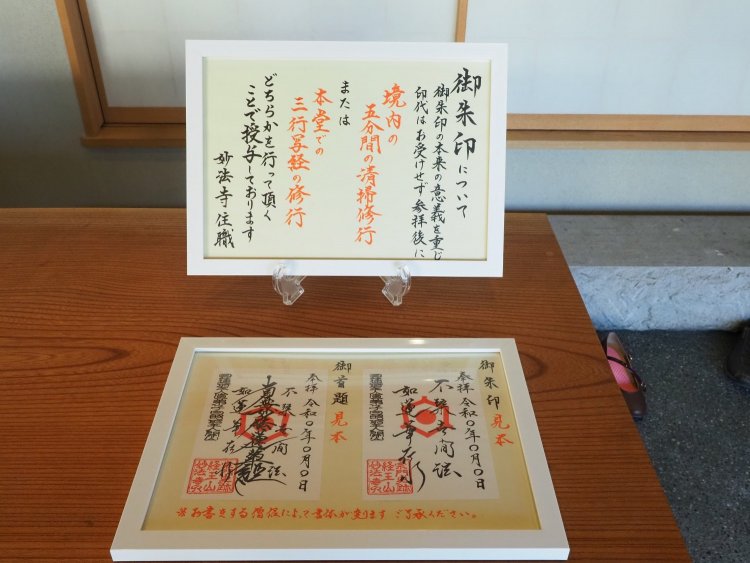 御朱印について
御朱印の本来の意義を重じ
印代はお受けせず参拝後に
境内の
五分間の清掃修行
または
本堂での
三行写経の修行
どちらかを行って頂く
ことで授与しております
妙法寺住職
御朱印見本
奉拝 令和〇年〇月〇日
不染世間法
如蓮華在水
御首題見本
奉拝 令和〇年〇月〇日
不染世間法
南無妙法蓮華経
如蓮華在水
経王山
妙法寺
※お書きする僧侶によって書体が変ります ご了承ください。